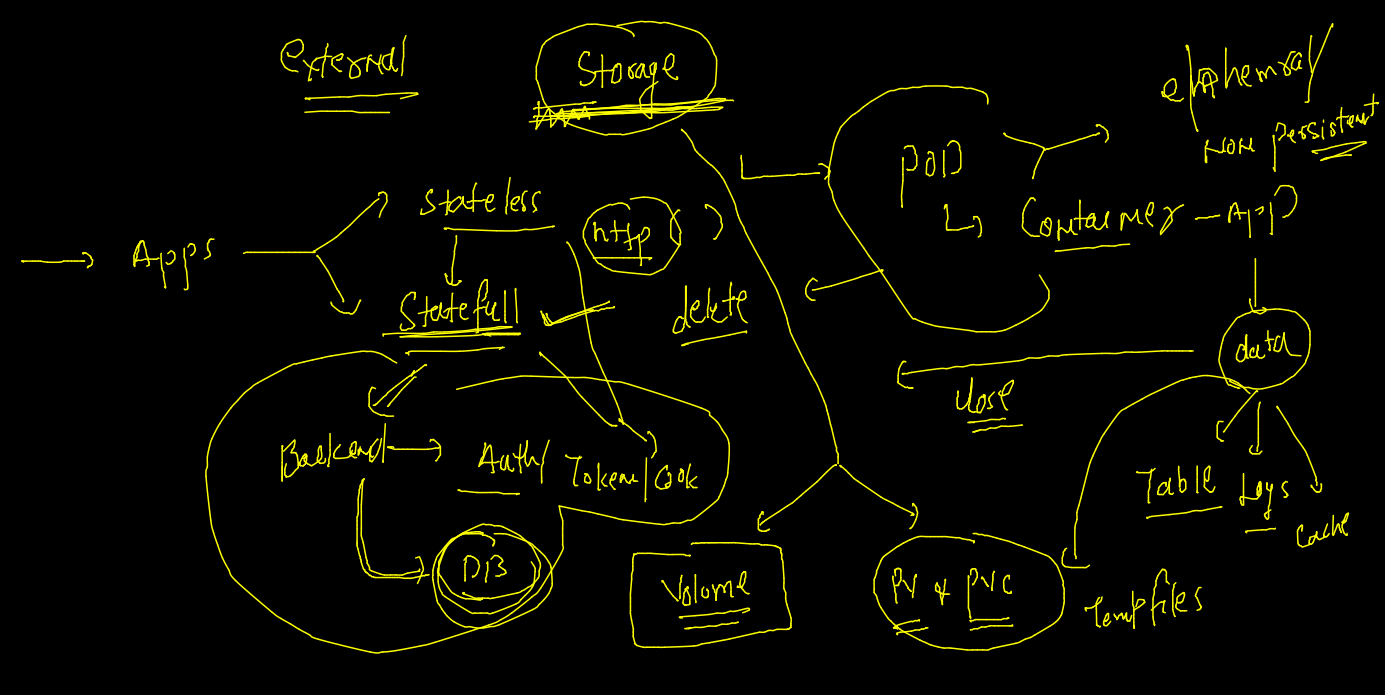 external
Storage
ephemral
NON Persistent
POD
Container - App
Apps
Stateless
http
Statefull
delete
data
Backend
Auth/
Token/Cook
Table
Logs
Cache
DB
Volume
PV & PVC
Tempfiles